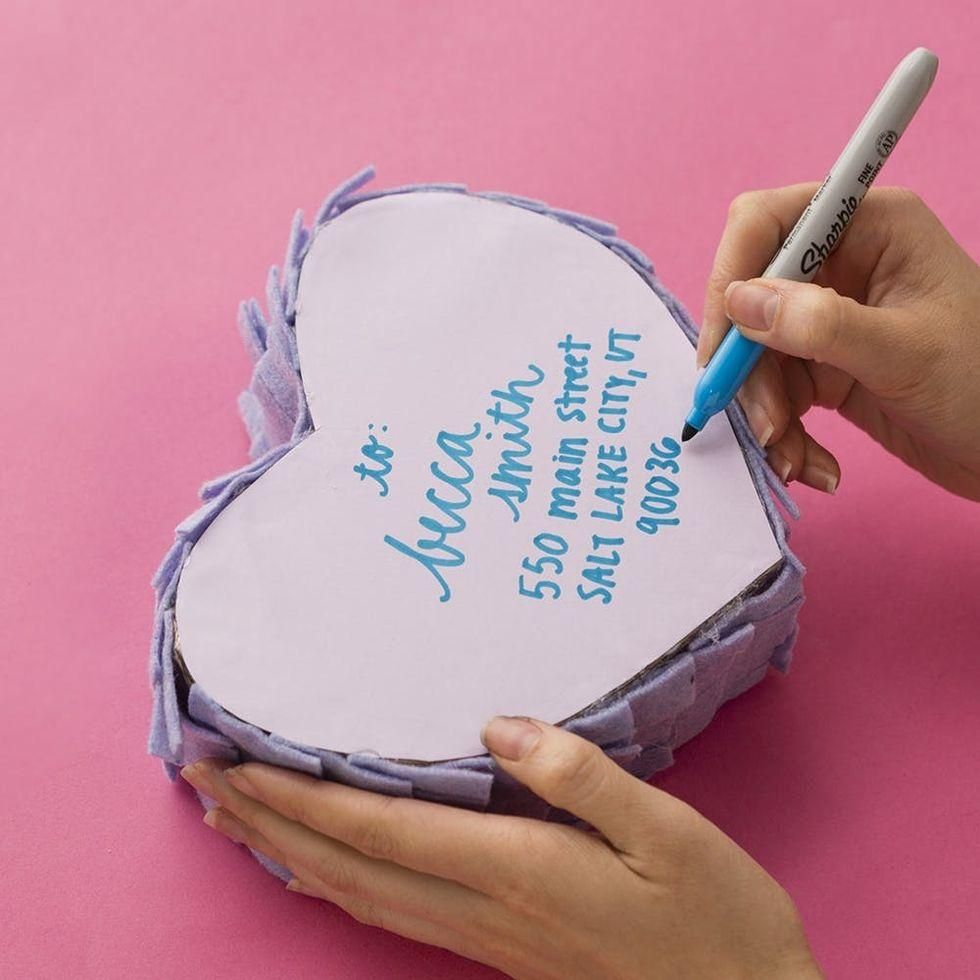 to:
becca
smith
550 main street
SALT LAKE CITY, VT
90036
Sharpie
FINE
POINT
AP
Permanent Marker